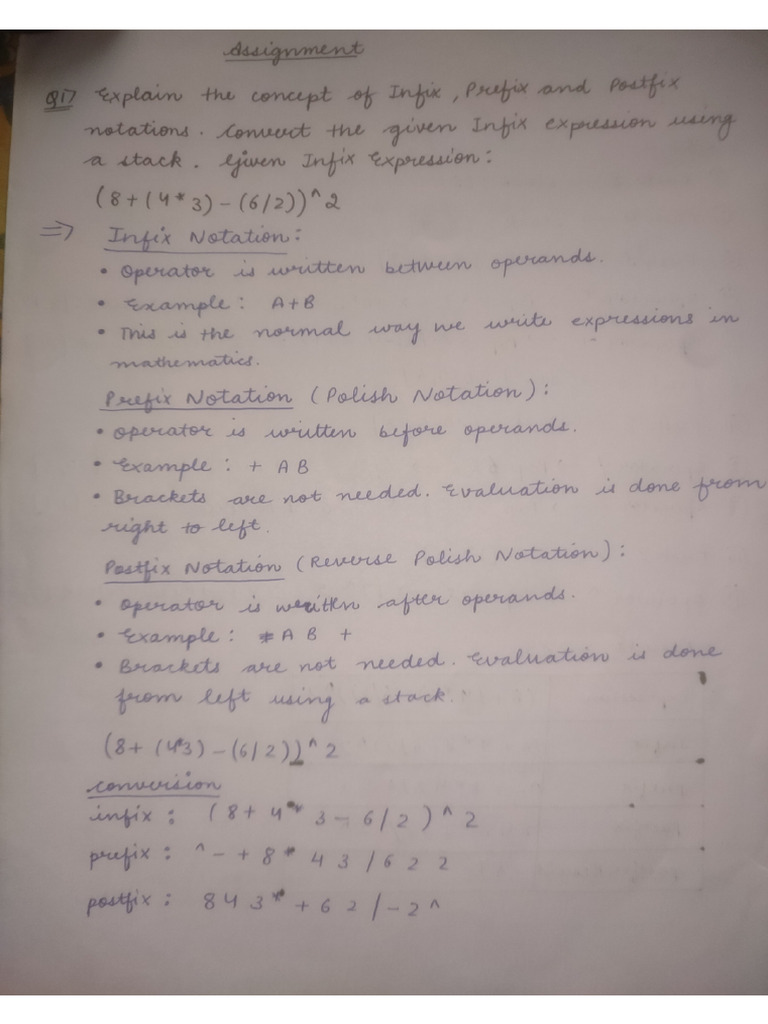 Assignment
Q1) Explain the concept of Infix, Prefix and Postfix
notations. Convert the given Infix expression using
a stack. Given Infix Expression:
(8+(4*3)-(6/2))^2
=> Infix Notation:
• Operator is written between operands.
• Example: A+B
• This is the normal way we write expressions in
mathematics.
Prefix Notation (Polish Notation):
• Operator is written before operands.
• Example: + A B
• Brackets are not needed. Evaluation is done from
right to left.
Postfix Notation (Reverse Polish Notation):
• Operator is written after operands.
• Example: A B +
• Brackets are not needed. Evaluation is done
from left using a stack.
(8+(4*3)-(6/2))^2
conversion
infix: (8+4*3-6/2)^2
prefix: ^-+8*43/622
postfix: 843*+62/-2^